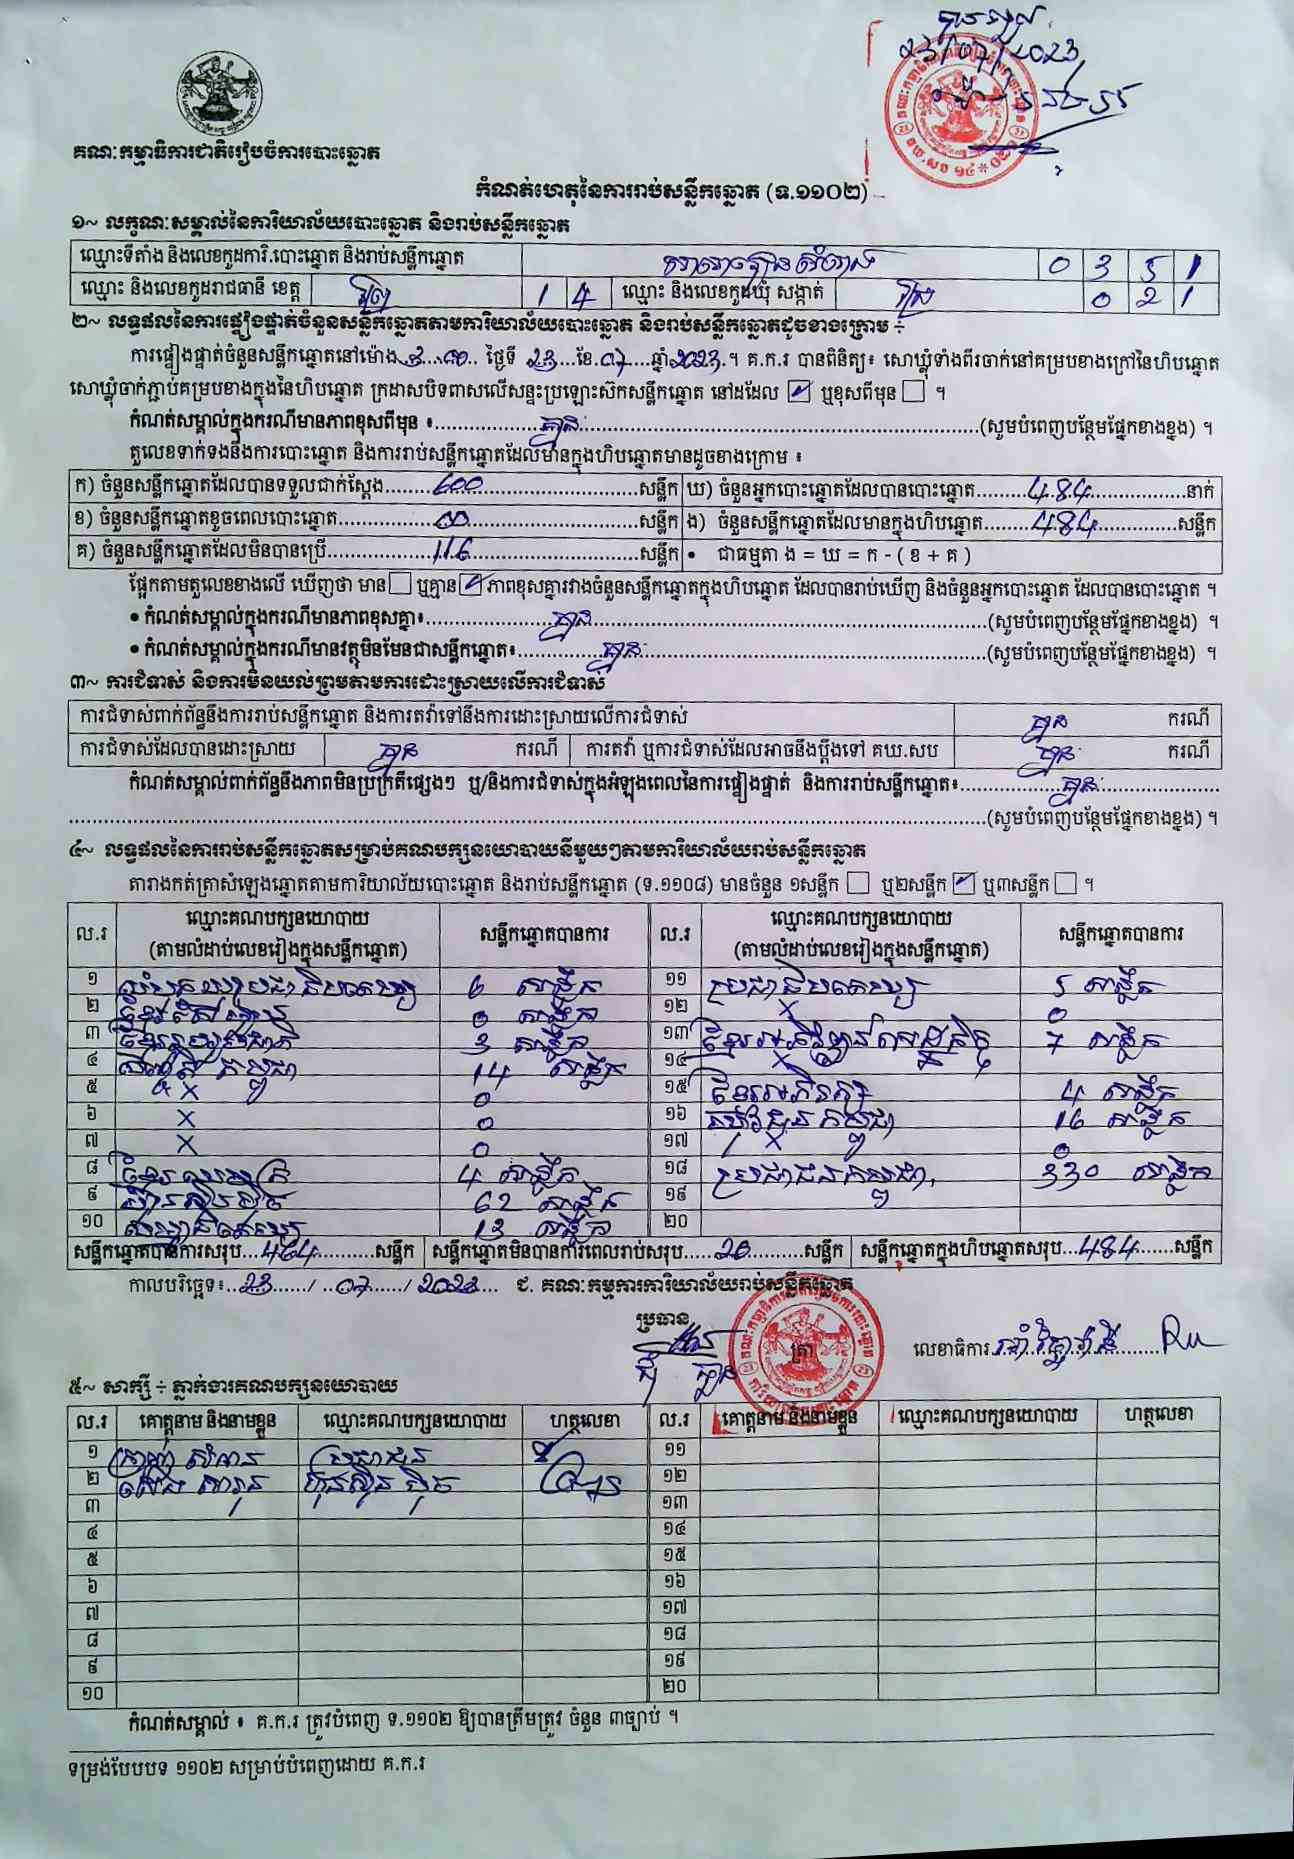 បានទទួល
23/07/2023
គណៈកម្មាធិការជាតិរៀបចំការបោះឆ្នោត
កំណត់ហេតុនៃការរាប់សន្លឹកឆ្នោត (ទ.១១០២)
១~ លក្ខណៈសម្គាល់នៃការិយាល័យបោះឆ្នោត និងរាប់សន្លឹកឆ្នោត
ឈ្មោះទីតាំង និងលេខកូដការិ.បោះឆ្នោត និងរាប់សន្លឹកឆ្នោត 0 3 5 1
ឈ្មោះ និងលេខកូដរាជធានី ខេត្ត 1 4 ឈ្មោះ និងលេខកូដឃុំ សង្កាត់ 0 2 1
២~ លទ្ធផលនៃការផ្ទៀងផ្ទាត់ចំនួនសន្លឹកឆ្នោតតាមការិយាល័យបោះឆ្នោត និងរាប់សន្លឹកឆ្នោតដូចខាងក្រោម ÷
ការផ្ទៀងផ្ទាត់ចំនួនសន្លឹកឆ្នោតនៅម៉ោង 3:00 ថ្ងៃទី 23 ខែ 07 ឆ្នាំ 2023 ។ គ.ក.រ បានពិនិត្យ៖ សោឃ្លុំទាំងពីរចាក់នៅគម្របខាងក្រៅនៃហិបឆ្នោត
សោឃ្លុំចាក់ភ្ជាប់គម្របខាងក្នុងនៃហិបឆ្នោត ក្រដាសបិទពាសលើសន្ទះប្រឡោះស៊កសន្លឹកឆ្នោត នៅដដែល ☑ ឬខុសពីមុន ☐ ។
កំណត់សម្គាល់ក្នុងករណីមានភាពខុសពីមុន ៖ គ្មាន (សូមបំពេញបន្ថែមផ្នែកខាងខ្នង) ។
តួលេខទាក់ទងនឹងការបោះឆ្នោត និងការរាប់សន្លឹកឆ្នោតដែលមានក្នុងហិបឆ្នោតមានដូចខាងក្រោម ៖
ក) ចំនួនសន្លឹកឆ្នោតដែលបានទទួលជាក់ស្តែង 600 សន្លឹក ឃ) ចំនួនអ្នកបោះឆ្នោតដែលបានបោះឆ្នោត 484 នាក់
ខ) ចំនួនសន្លឹកឆ្នោតខូចពេលបោះឆ្នោត 00 សន្លឹក ង) ចំនួនសន្លឹកឆ្នោតដែលមានក្នុងហិបឆ្នោត 484 សន្លឹក
គ) ចំនួនសន្លឹកឆ្នោតដែលមិនបានប្រើ 116 សន្លឹក • ជាធម្មតា ង = ឃ = ក - ( ខ + គ )
ផ្អែកតាមតួលេខខាងលើ ឃើញថា មាន ☐ ឬគ្មាន ☑ ភាពខុសគ្នារវាងចំនួនសន្លឹកឆ្នោតក្នុងហិបឆ្នោត ដែលបានរាប់ឃើញ និងចំនួនអ្នកបោះឆ្នោត ដែលបានបោះឆ្នោត ។
• កំណត់សម្គាល់ក្នុងករណីមានភាពខុសគ្នា៖ គ្មាន (សូមបំពេញបន្ថែមផ្នែកខាងខ្នង) ។
• កំណត់សម្គាល់ក្នុងករណីមានវត្ថុមិនមែនជាសន្លឹកឆ្នោត៖ គ្មាន (សូមបំពេញបន្ថែមផ្នែកខាងខ្នង) ។
៣~ ការជំទាស់ និងការមិនយល់ព្រមតាមការដោះស្រាយលើការជំទាស់
ការជំទាស់ពាក់ព័ន្ធនឹងការរាប់សន្លឹកឆ្នោត និងការតវ៉ាទៅនឹងការដោះស្រាយលើការជំទាស់ គ្មាន ករណី
ការជំទាស់ដែលបានដោះស្រាយ គ្មាន ករណី ការតវ៉ា ឬការជំទាស់ដែលអាចនឹងប្តឹងទៅ គឃ.សប គ្មាន ករណី
កំណត់សម្គាល់ពាក់ព័ន្ធនឹងភាពមិនប្រក្រតីផ្សេងៗ ឬ/និងការជំទាស់ក្នុងអំឡុងពេលនៃការផ្ទៀងផ្ទាត់ និងការរាប់សន្លឹកឆ្នោត៖ គ្មាន
(សូមបំពេញបន្ថែមផ្នែកខាងខ្នង) ។
៤~ លទ្ធផលនៃការរាប់សន្លឹកឆ្នោតសម្រាប់គណបក្សនយោបាយនីមួយៗតាមការិយាល័យរាប់សន្លឹកឆ្នោត
តារាងកត់ត្រាសំឡេងឆ្នោតតាមការិយាល័យបោះឆ្នោត និងរាប់សន្លឹកឆ្នោត (ទ.១១០៨) មានចំនួន ១សន្លឹក ☐ ឬ២សន្លឹក ☑ ឬ៣សន្លឹក ☐ ។
ល.រ ឈ្មោះគណបក្សនយោបាយ (តាមលំដាប់លេខរៀងក្នុងសន្លឹកឆ្នោត) សន្លឹកឆ្នោតបានការ ល.រ ឈ្មោះគណបក្សនយោបាយ (តាមលំដាប់លេខរៀងក្នុងសន្លឹកឆ្នោត) សន្លឹកឆ្នោតបានការ
១ 6 សន្លឹក ១១ ប្រជាធិបតេយ្យ 5 សន្លឹក
២ 0 សន្លឹក ១២ x 0
៣ 3 សន្លឹក ១៣ ខ្មែរអភិវឌ្ឍន៍សេដ្ឋកិច្ច 7 សន្លឹក
៤ កម្ពុជា 14 សន្លឹក ១៤ x
៥ x 0 ១៥ 4 សន្លឹក
៦ x 0 ១៦ កម្ពុជា 16 សន្លឹក
៧ x 0 ១៧ x 0
៨ ខ្មែរ 4 សន្លឹក ១៨ ប្រជាជនកម្ពុជា 330 សន្លឹក
៩ ហ៊្វុនស៊ិនប៉ិច 62 សន្លឹក ១៩
១០ 13 សន្លឹក ២០
សន្លឹកឆ្នោតបានការសរុប 464 សន្លឹក សន្លឹកឆ្នោតមិនបានការពេលរាប់សរុប 20 សន្លឹក សន្លឹកឆ្នោតក្នុងហិបឆ្នោតសរុប 484 សន្លឹក
កាលបរិច្ឆេទ៖ 23 / 07 / 2023 ជ. គណៈកម្មការការិយាល័យរាប់សន្លឹកឆ្នោត
ប្រធាន
ត្រា
លេខាធិការ
៥~ សាក្សី ÷ ភ្នាក់ងារគណបក្សនយោបាយ
ល.រ គោត្តនាម និងនាមខ្លួន ឈ្មោះគណបក្សនយោបាយ ហត្ថលេខា ល.រ គោត្តនាម និងនាមខ្លួន ឈ្មោះគណបក្សនយោបាយ ហត្ថលេខា
១ ប្រជាជន ១១
២ ហ៊្វុនស៊ិនប៉ិច ១២
៣ ១៣
៤ ១៤
៥ ១៥
៦ ១៦
៧ ១៧
៨ ១៨
៩ ១៩
១០ ២០
កំណត់សម្គាល់ ៖ គ.ក.រ ត្រូវបំពេញ ទ.១១០២ ឱ្យបានត្រឹមត្រូវ ចំនួន ៣ច្បាប់ ។
ទម្រង់បែបបទ ១១០២ សម្រាប់បំពេញដោយ គ.ក.រ